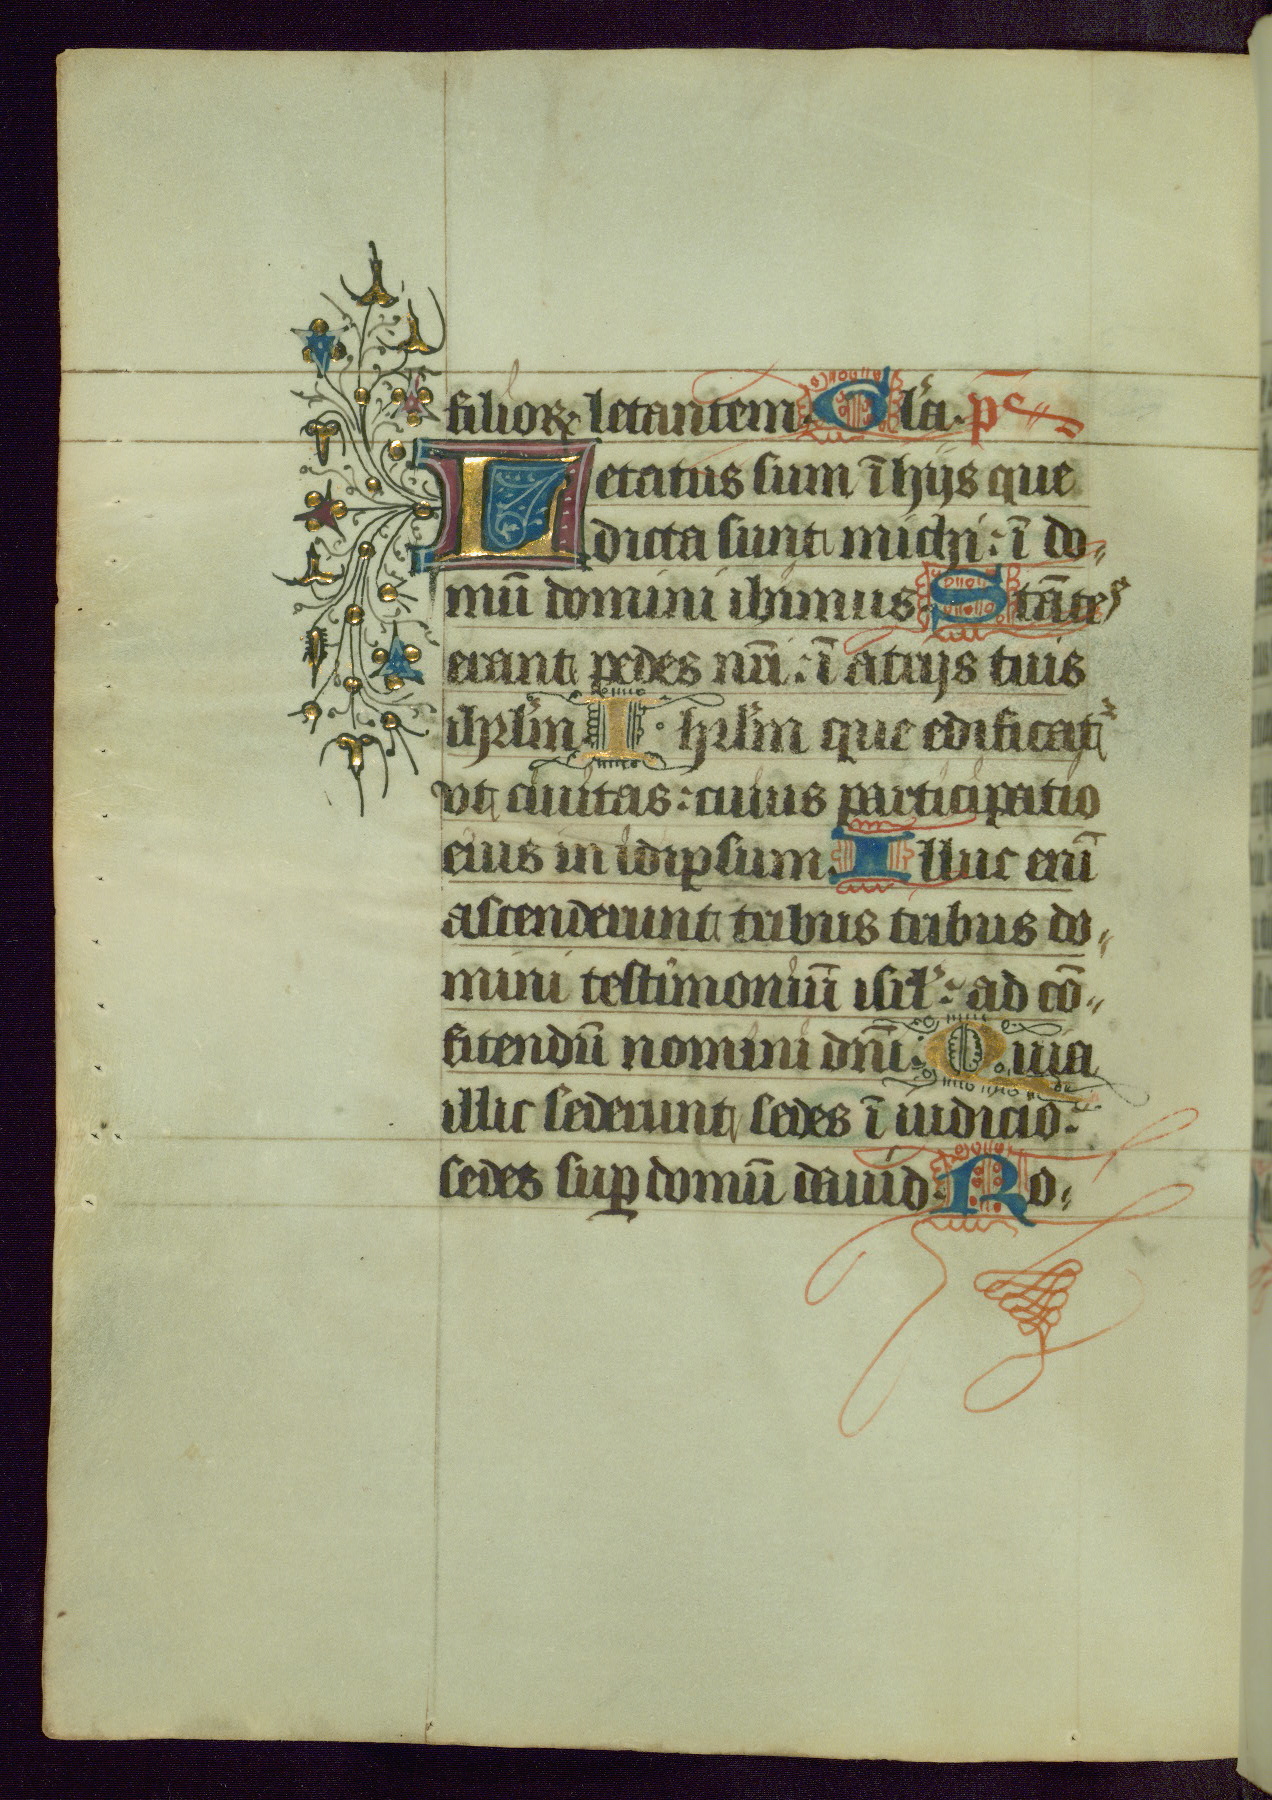 filioꝝ letantem. Gl'a. pˢ
Letatus sum ī hijs que
dicta sunt michi: ī do⸗
mū domini ibimus Stātes
erant pedes nr̄i: ī atrijs tuis
ihrl̄m Ihrl̄m que edificat'
vt ciuitas: cuius participatio
eius in idipsum. Illuc eni̅
ascenderunt tribus tribus do⸗
mini testimoniū isrl': ad cō⸗
fitendū nomini dn̄i. Quia
illic sederunt sedes ī iudicio:
sedes suꝑ domū dauid. Ro⸗